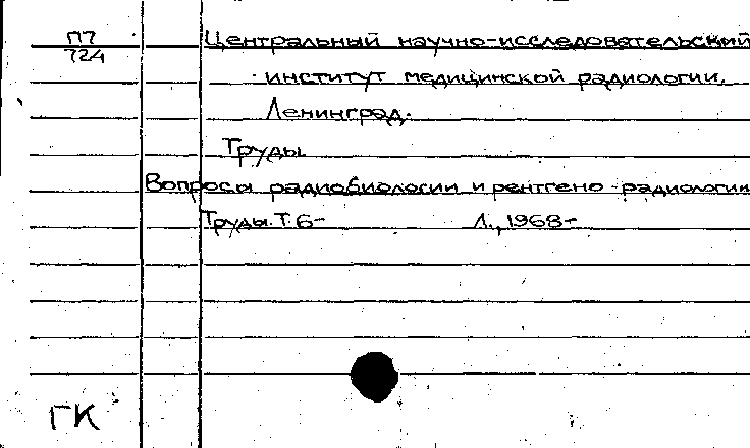 П7
724
Центральный научно-исследовательский
институт медицинской радиологии.
Ленинград.
Труды
Вопросы радиобиологии и рентгено-радиологии
Труды. Т. 6- Л., 1968-
ГК